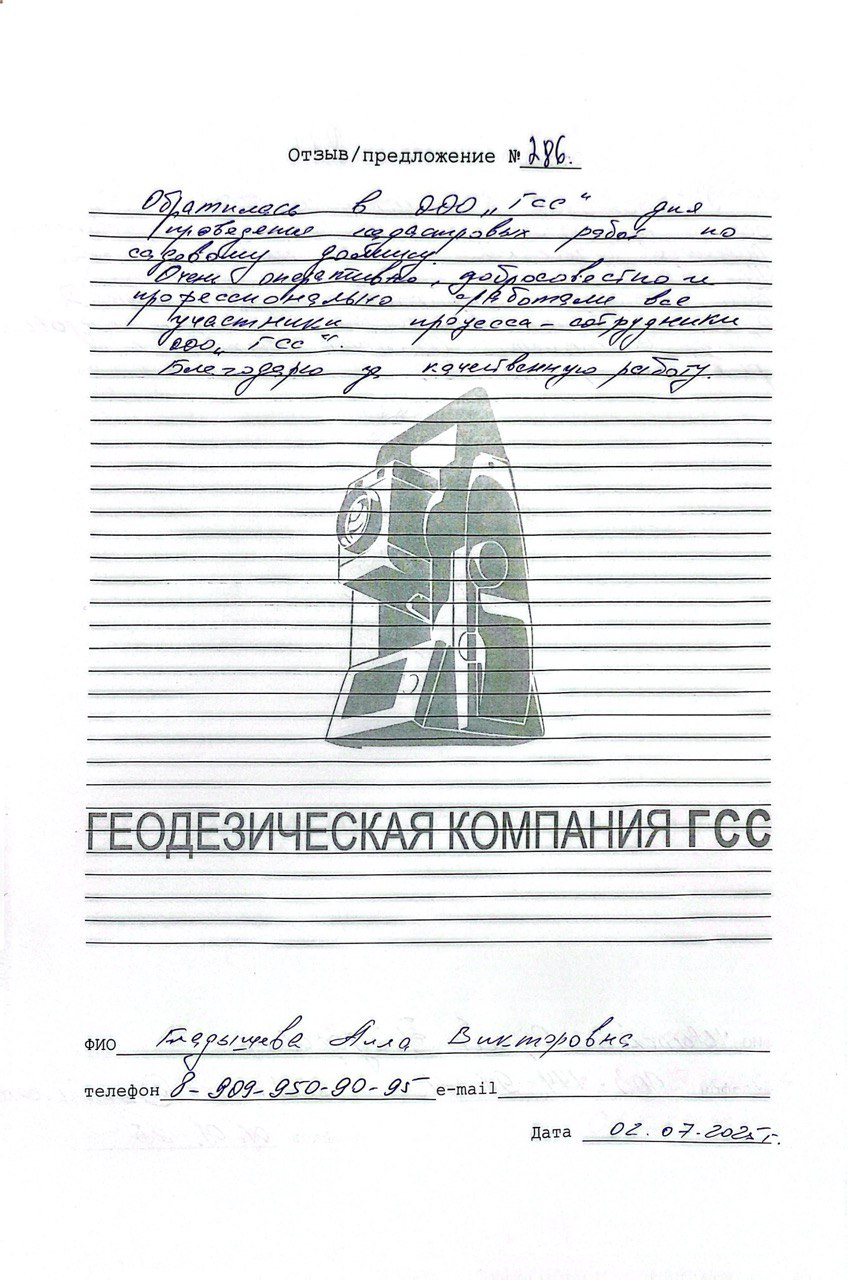 Отзыв/предложение № 286.
Обратилась в ООО „ГСС“ для
проведения кадастровых работ по
садовому домику.
Очень оперативно, добросовестно и
профессионально сработали все
участники процесса – сотрудники
ООО „ГСС“.
Благодарю за качественную работу.
ГЕОДЕЗИЧЕСКАЯ КОМПАНИЯ ГСС
ФИО Гладышева Алла Викторовна
телефон 8-909-950-90-95 e-mail
Дата 02.07.2025 г.